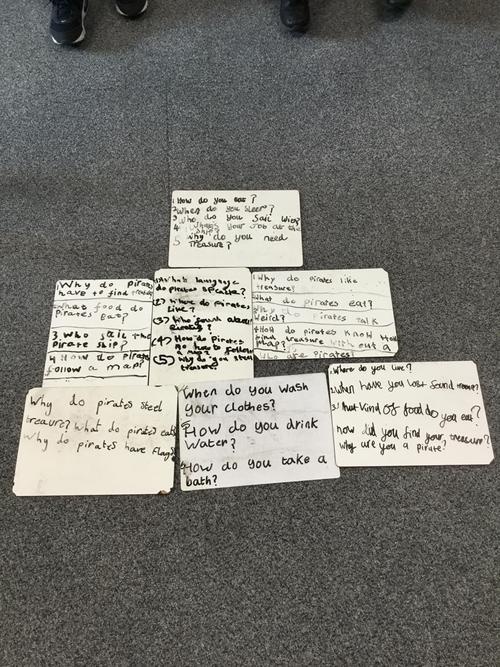 1 How do you eat?
2 When do you sleep?
3 Who do you sail with?
4 Whats your Job at the ship?
5 why do you need treasure?
Why do pirates
have to find treasure
what food do
Pirates eat?
3. Who the
Pirate ship?
4 How do pirate
follow a map?
(1) What language
do pirates
(2) Where do pirates
Live?
(3) Who found about
(4) How do Pirates
to follow
a map?
(5) Why do you steal
treasure?
1 Why do pirates like
treasure?
What do pirates eat?
Why do Pirates talk
weird?
4 How do pirates know how
find treasure with out a
map?
who are Pirates?
Why do pirates steel
treasure? What do pirates eat
Why do pirates have flags
When do you wash
your clothes?
How do you drink
water?
How do you take a
bath?
1. Where do you live?
2. when have you lost found treasure?
3. what kind of food do you eat?
how did you find your treasure?
why are you a pirate?